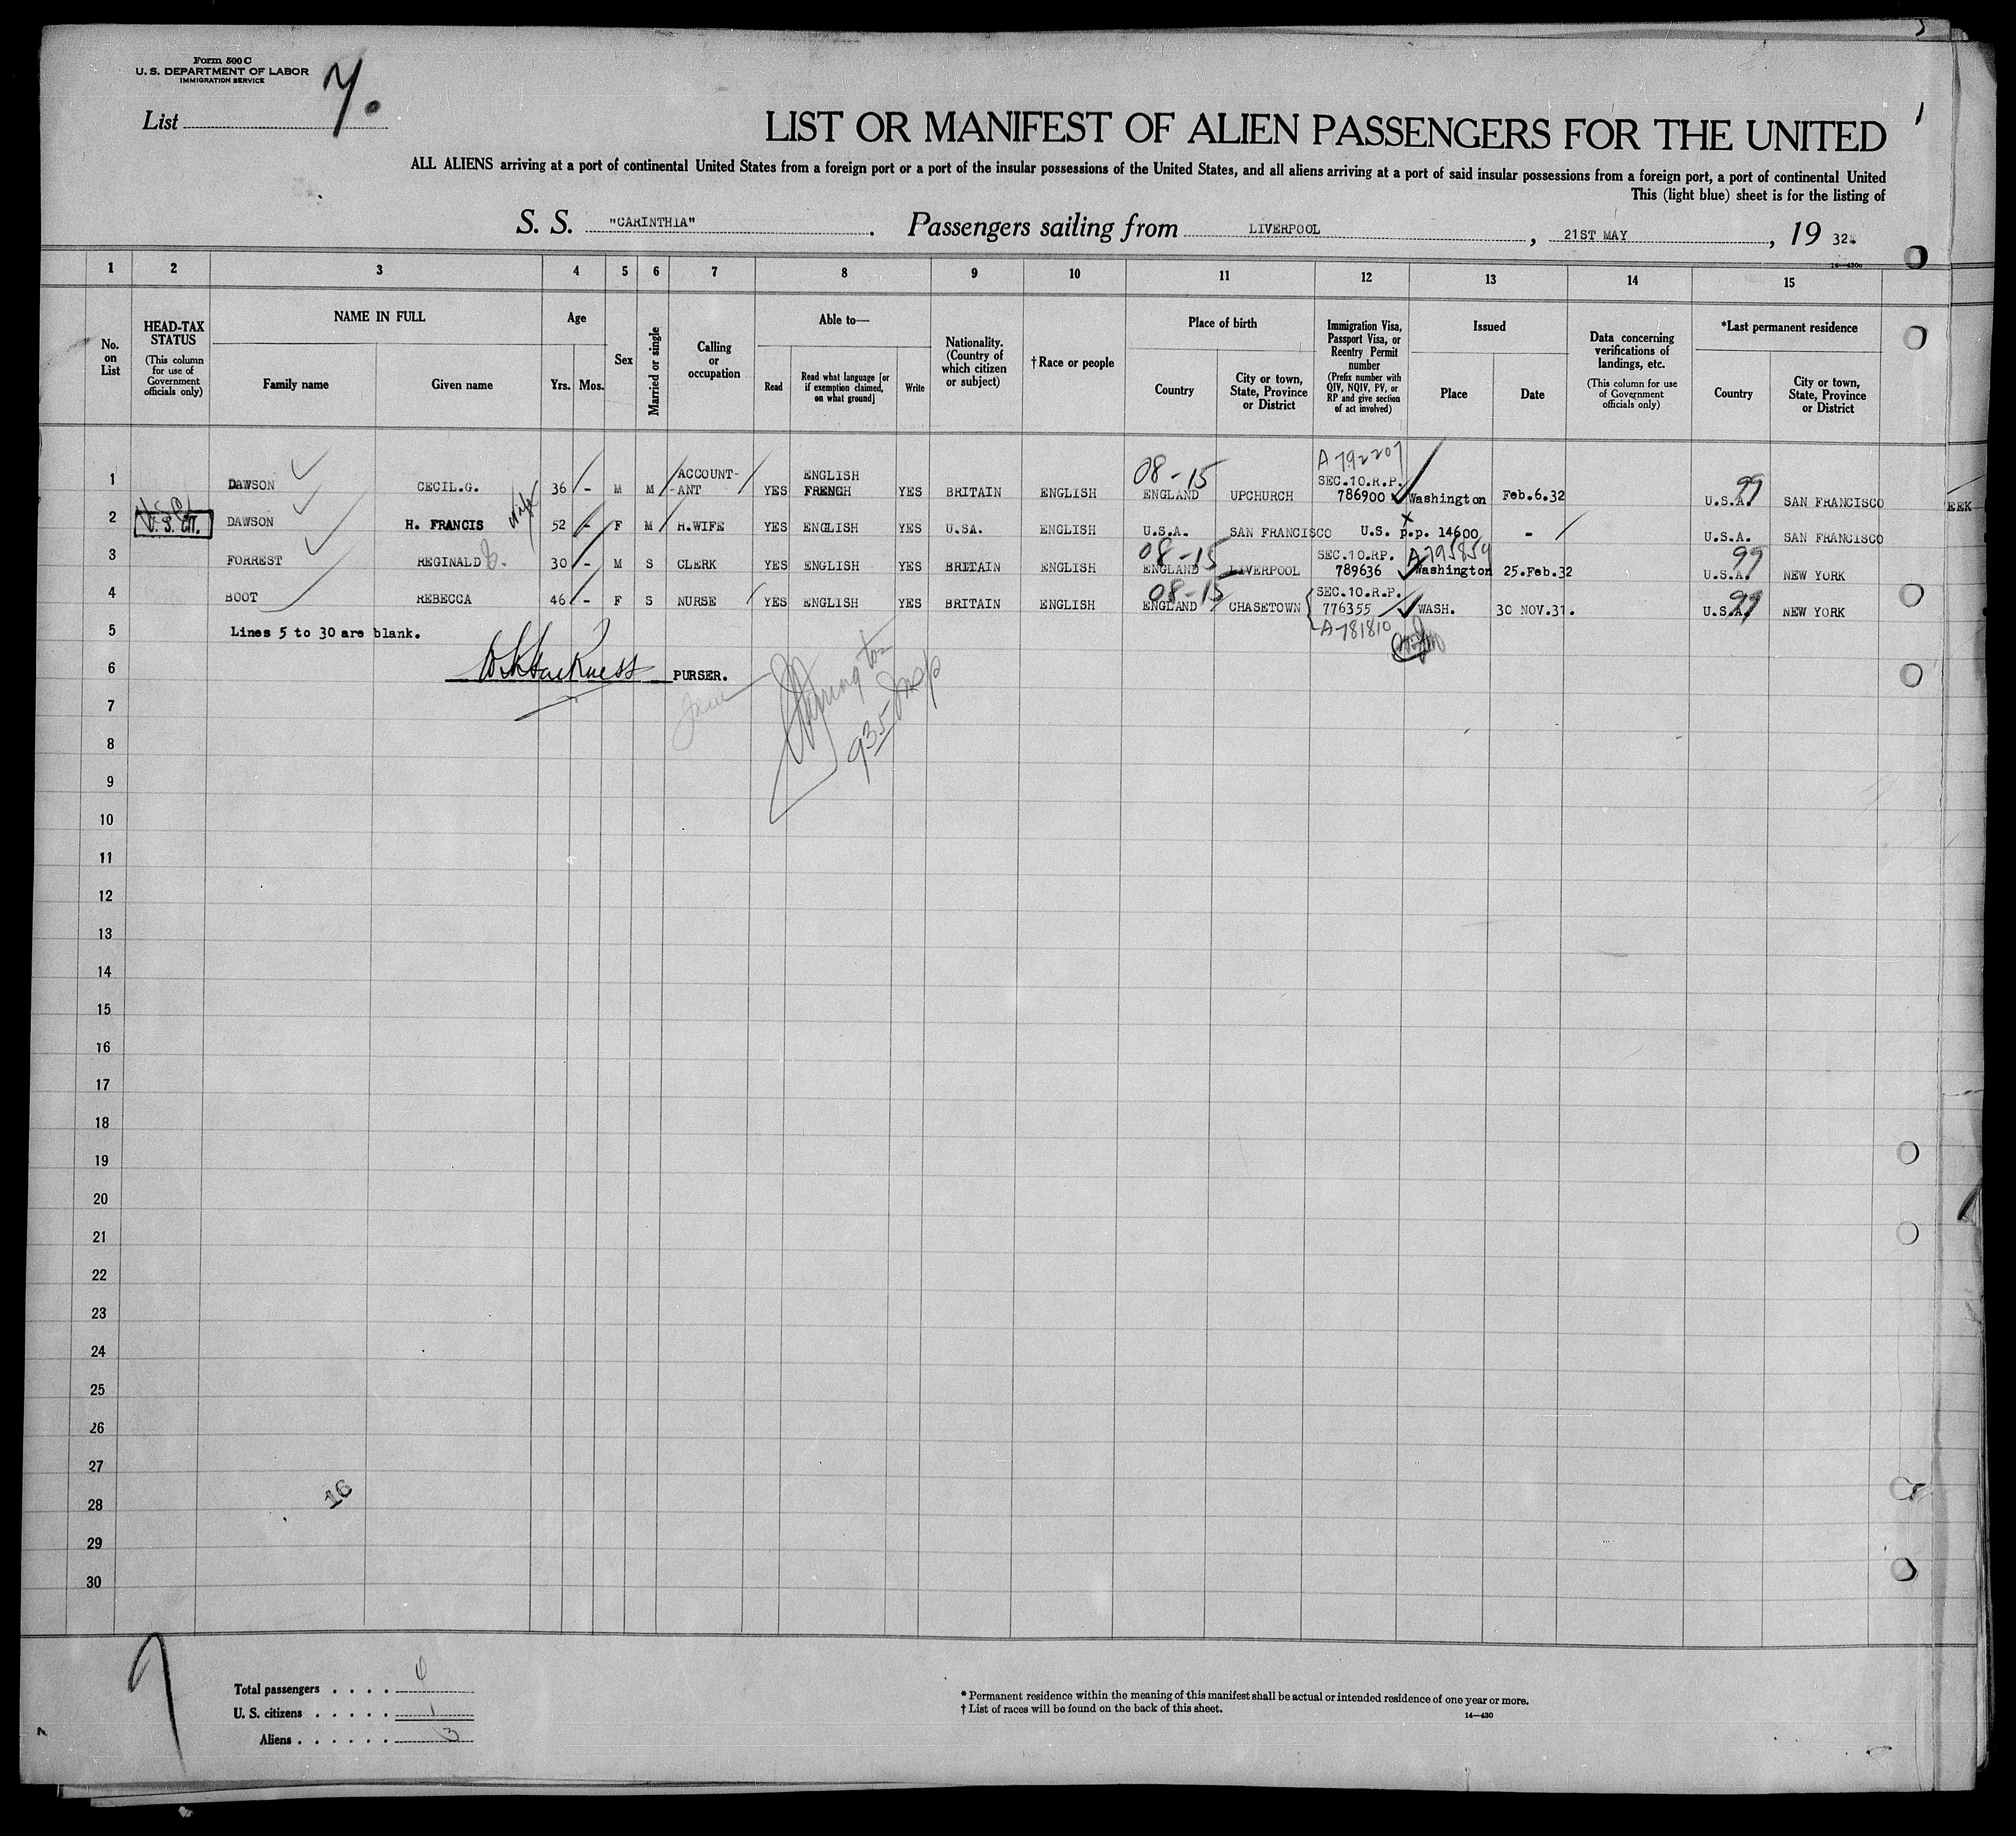 Form 500 C
U. S. DEPARTMENT OF LABOR
IMMIGRATION SERVICE
List 7.
LIST OR MANIFEST OF ALIEN PASSENGERS FOR THE UNITED
ALL ALIENS arriving at a port of continental United States from a foreign port or a port of the insular possessions of the United States, and all aliens arriving at a port of said insular possessions from a foreign port, a port of continental United
This (light blue) sheet is for the listing of
S. S. "CARINTHIA" . Passengers sailing from LIVERPOOL , 21ST MAY , 19 32.
14—430a
1 2 3 4 5 6 7 8 9 10 11 12 13 14 15
No. on List
HEAD-TAX STATUS (This column for use of Government officials only)
NAME IN FULL
Family name
Given name
Age
Yrs. Mos.
Sex
Married or single
Calling or occupation
Able to—
Read
Read what language [or if exemption claimed, on what ground]
Write
Nationality. (Country of which citizen or subject)
† Race or people
Place of birth
Country
City or town, State, Province or District
Immigration Visa, Passport Visa, or Reentry Permit number (Prefix number with QIV, NQIV, PV, or RP and give section of act involved)
Issued
Place
Date
Data concerning verifications of landings, etc. (This column for use of Government officials only)
*Last permanent residence
Country
City or town, State, Province or District
1 DAWSON CECIL.G. 36 - M M ACCOUNT-ANT YES ENGLISH FRENCH YES BRITAIN ENGLISH 08-15 ENGLAND UPCHURCH A792207 SEC.10.R.P. 786900 Washington Feb.6.32 U.S.A. 99 SAN FRANCISCO
2 U. S. CIT. DAWSON H. FRANCIS wife 52 - F M H.WIFE YES ENGLISH YES U.SA. ENGLISH U.S.A. SAN FRANCISCO U.S. p.p. 14600 x - U.S.A. SAN FRANCISCO
EEK
3 FORREST REGINALD 30 - M S CLERK YES ENGLISH YES BRITAIN ENGLISH 08-15 ENGLAND LIVERPOOL SEC.10.RP. 789636 A795859 Washington 25.Feb.32 U.S.A. 99 NEW YORK
4 BOOT REBECCA 46 - F S NURSE YES ENGLISH YES BRITAIN ENGLISH 08-15 ENGLAND CHASETOWN SEC.10.R.P. 776355 A781810 WASH. 30 NOV.31. U.S.A. 99 NEW YORK
5 Lines 5 to 30 are blank.
6 PURSER.
7
8 935 Insp
9
10
11
12
13
14
15
16
17
18
19
20
21
22
23
24
25
26
27
28 16
29
30
Total passengers . . . .
U. S. citizens . . . . . 1
Aliens . . . . . . 3
* Permanent residence within the meaning of this manifest shall be actual or intended residence of one year or more.
† List of races will be found on the back of this sheet.
14—430